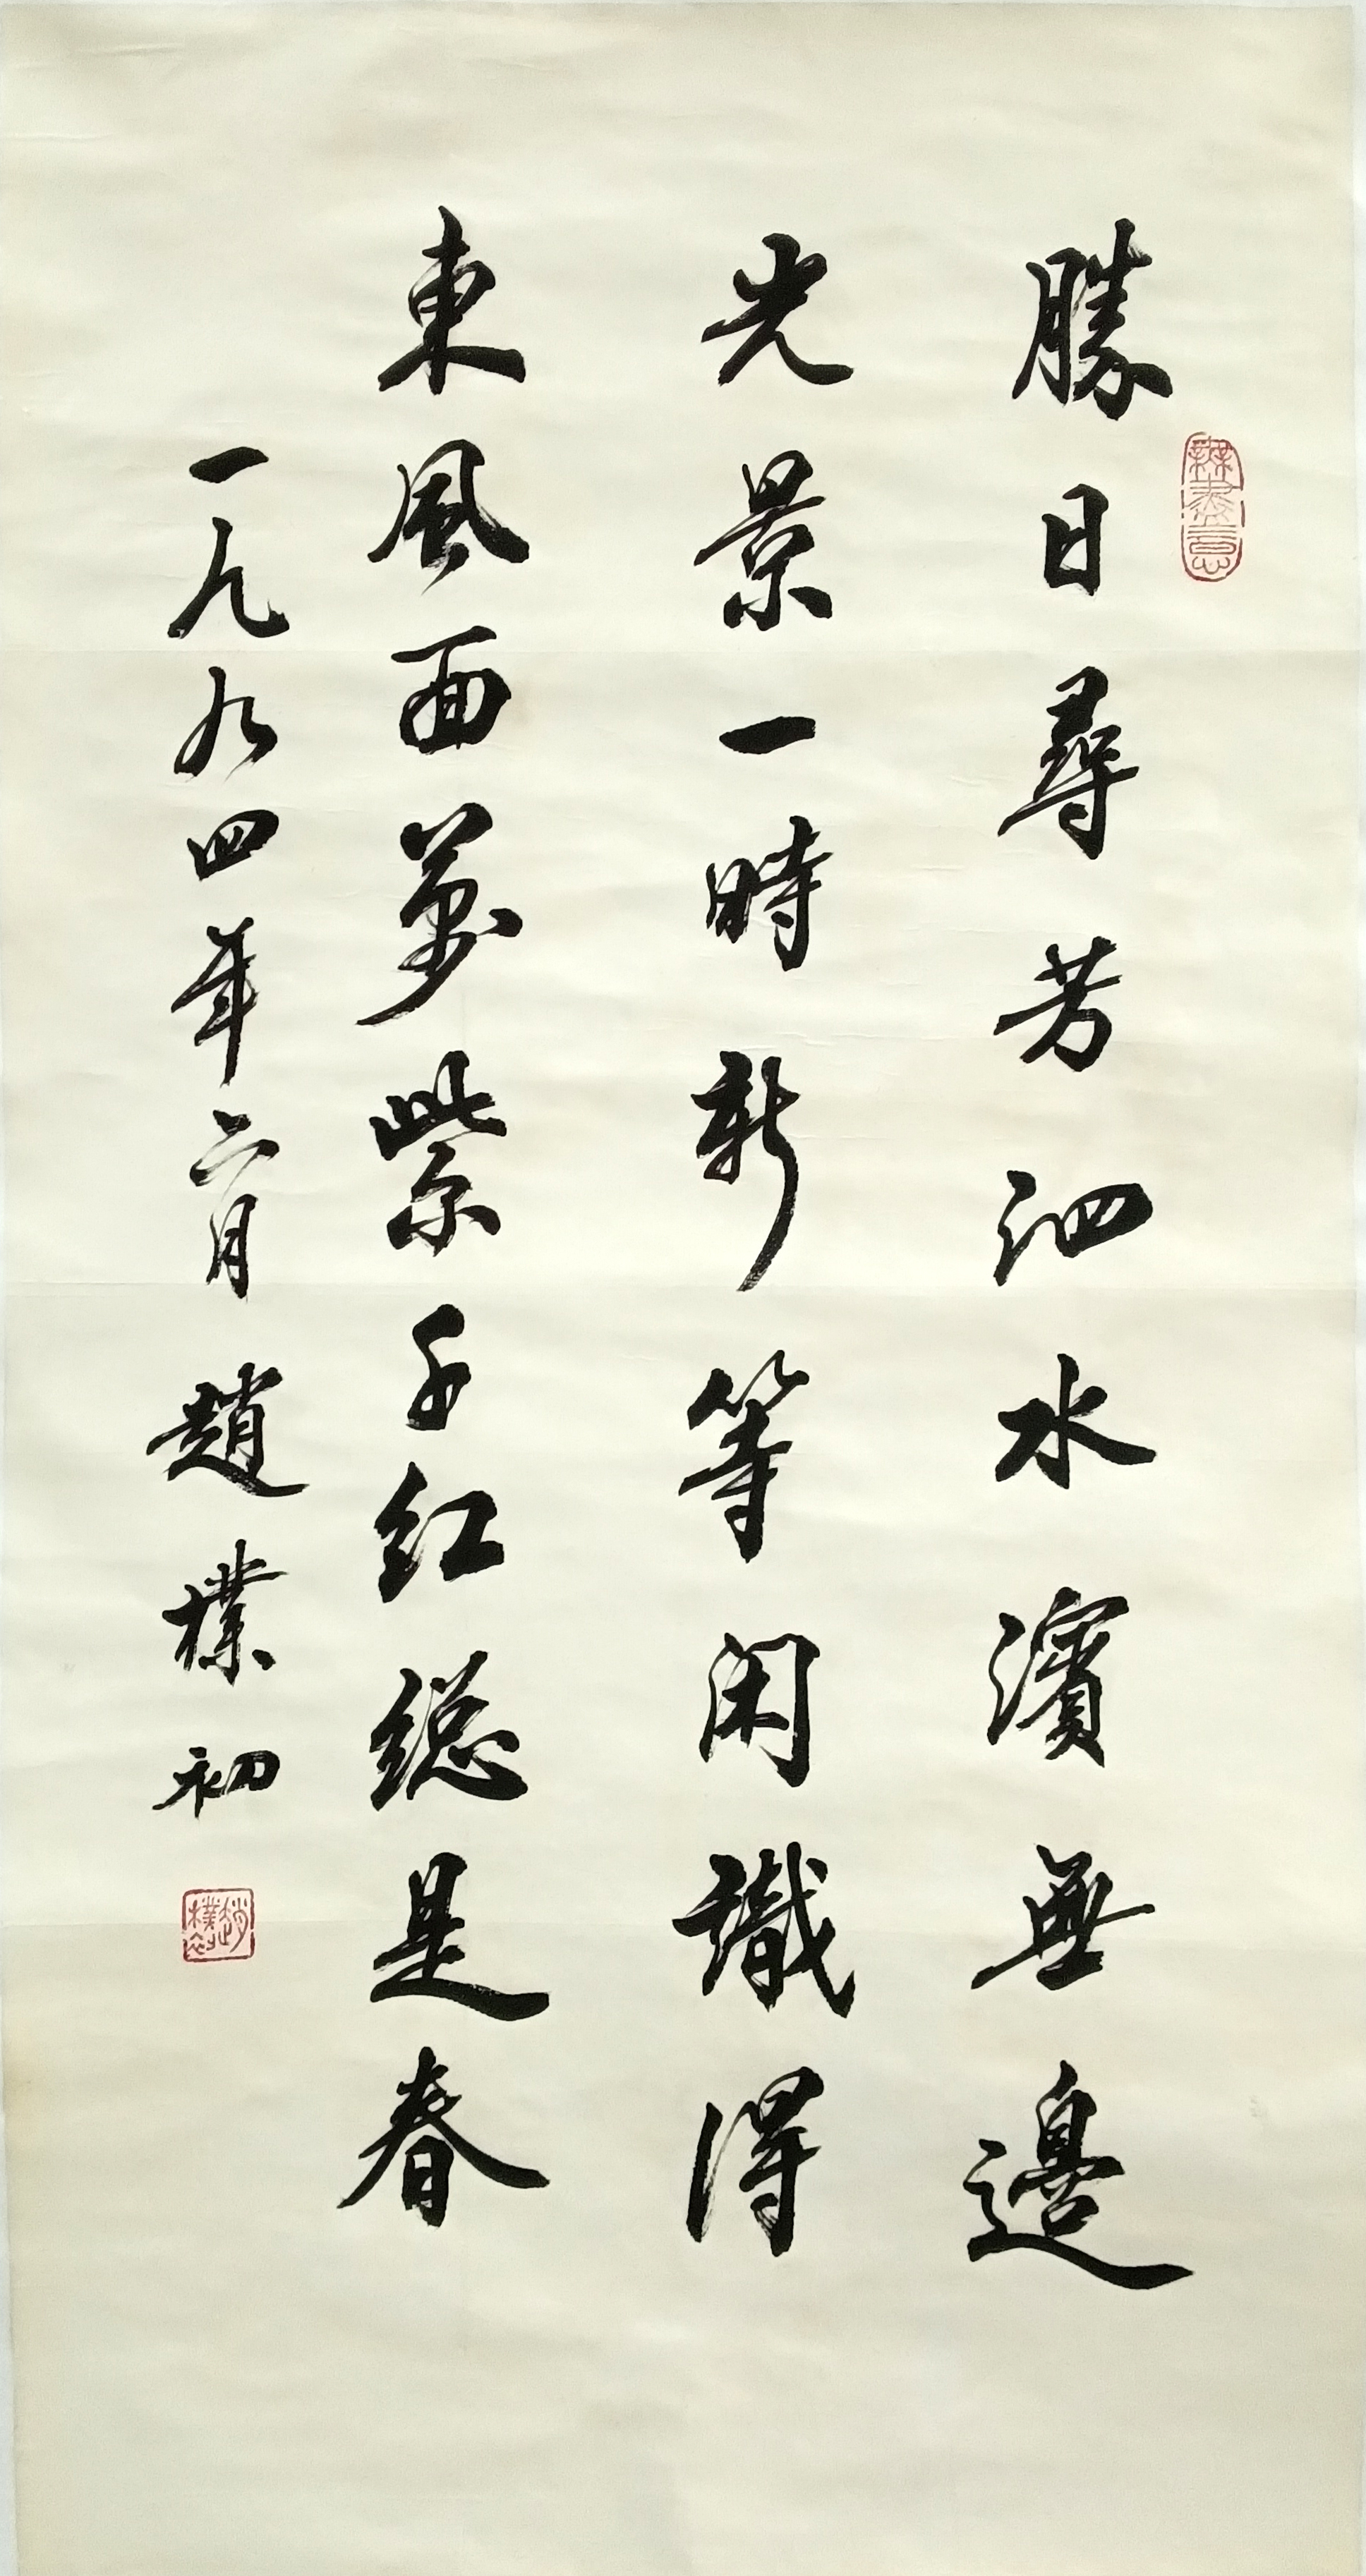 無盡意
勝日尋芳泗水濱無邊
光景一時新等閑識得
東風面萬紫千紅総是春
一九九四年六月 趙樸初
趙樸初